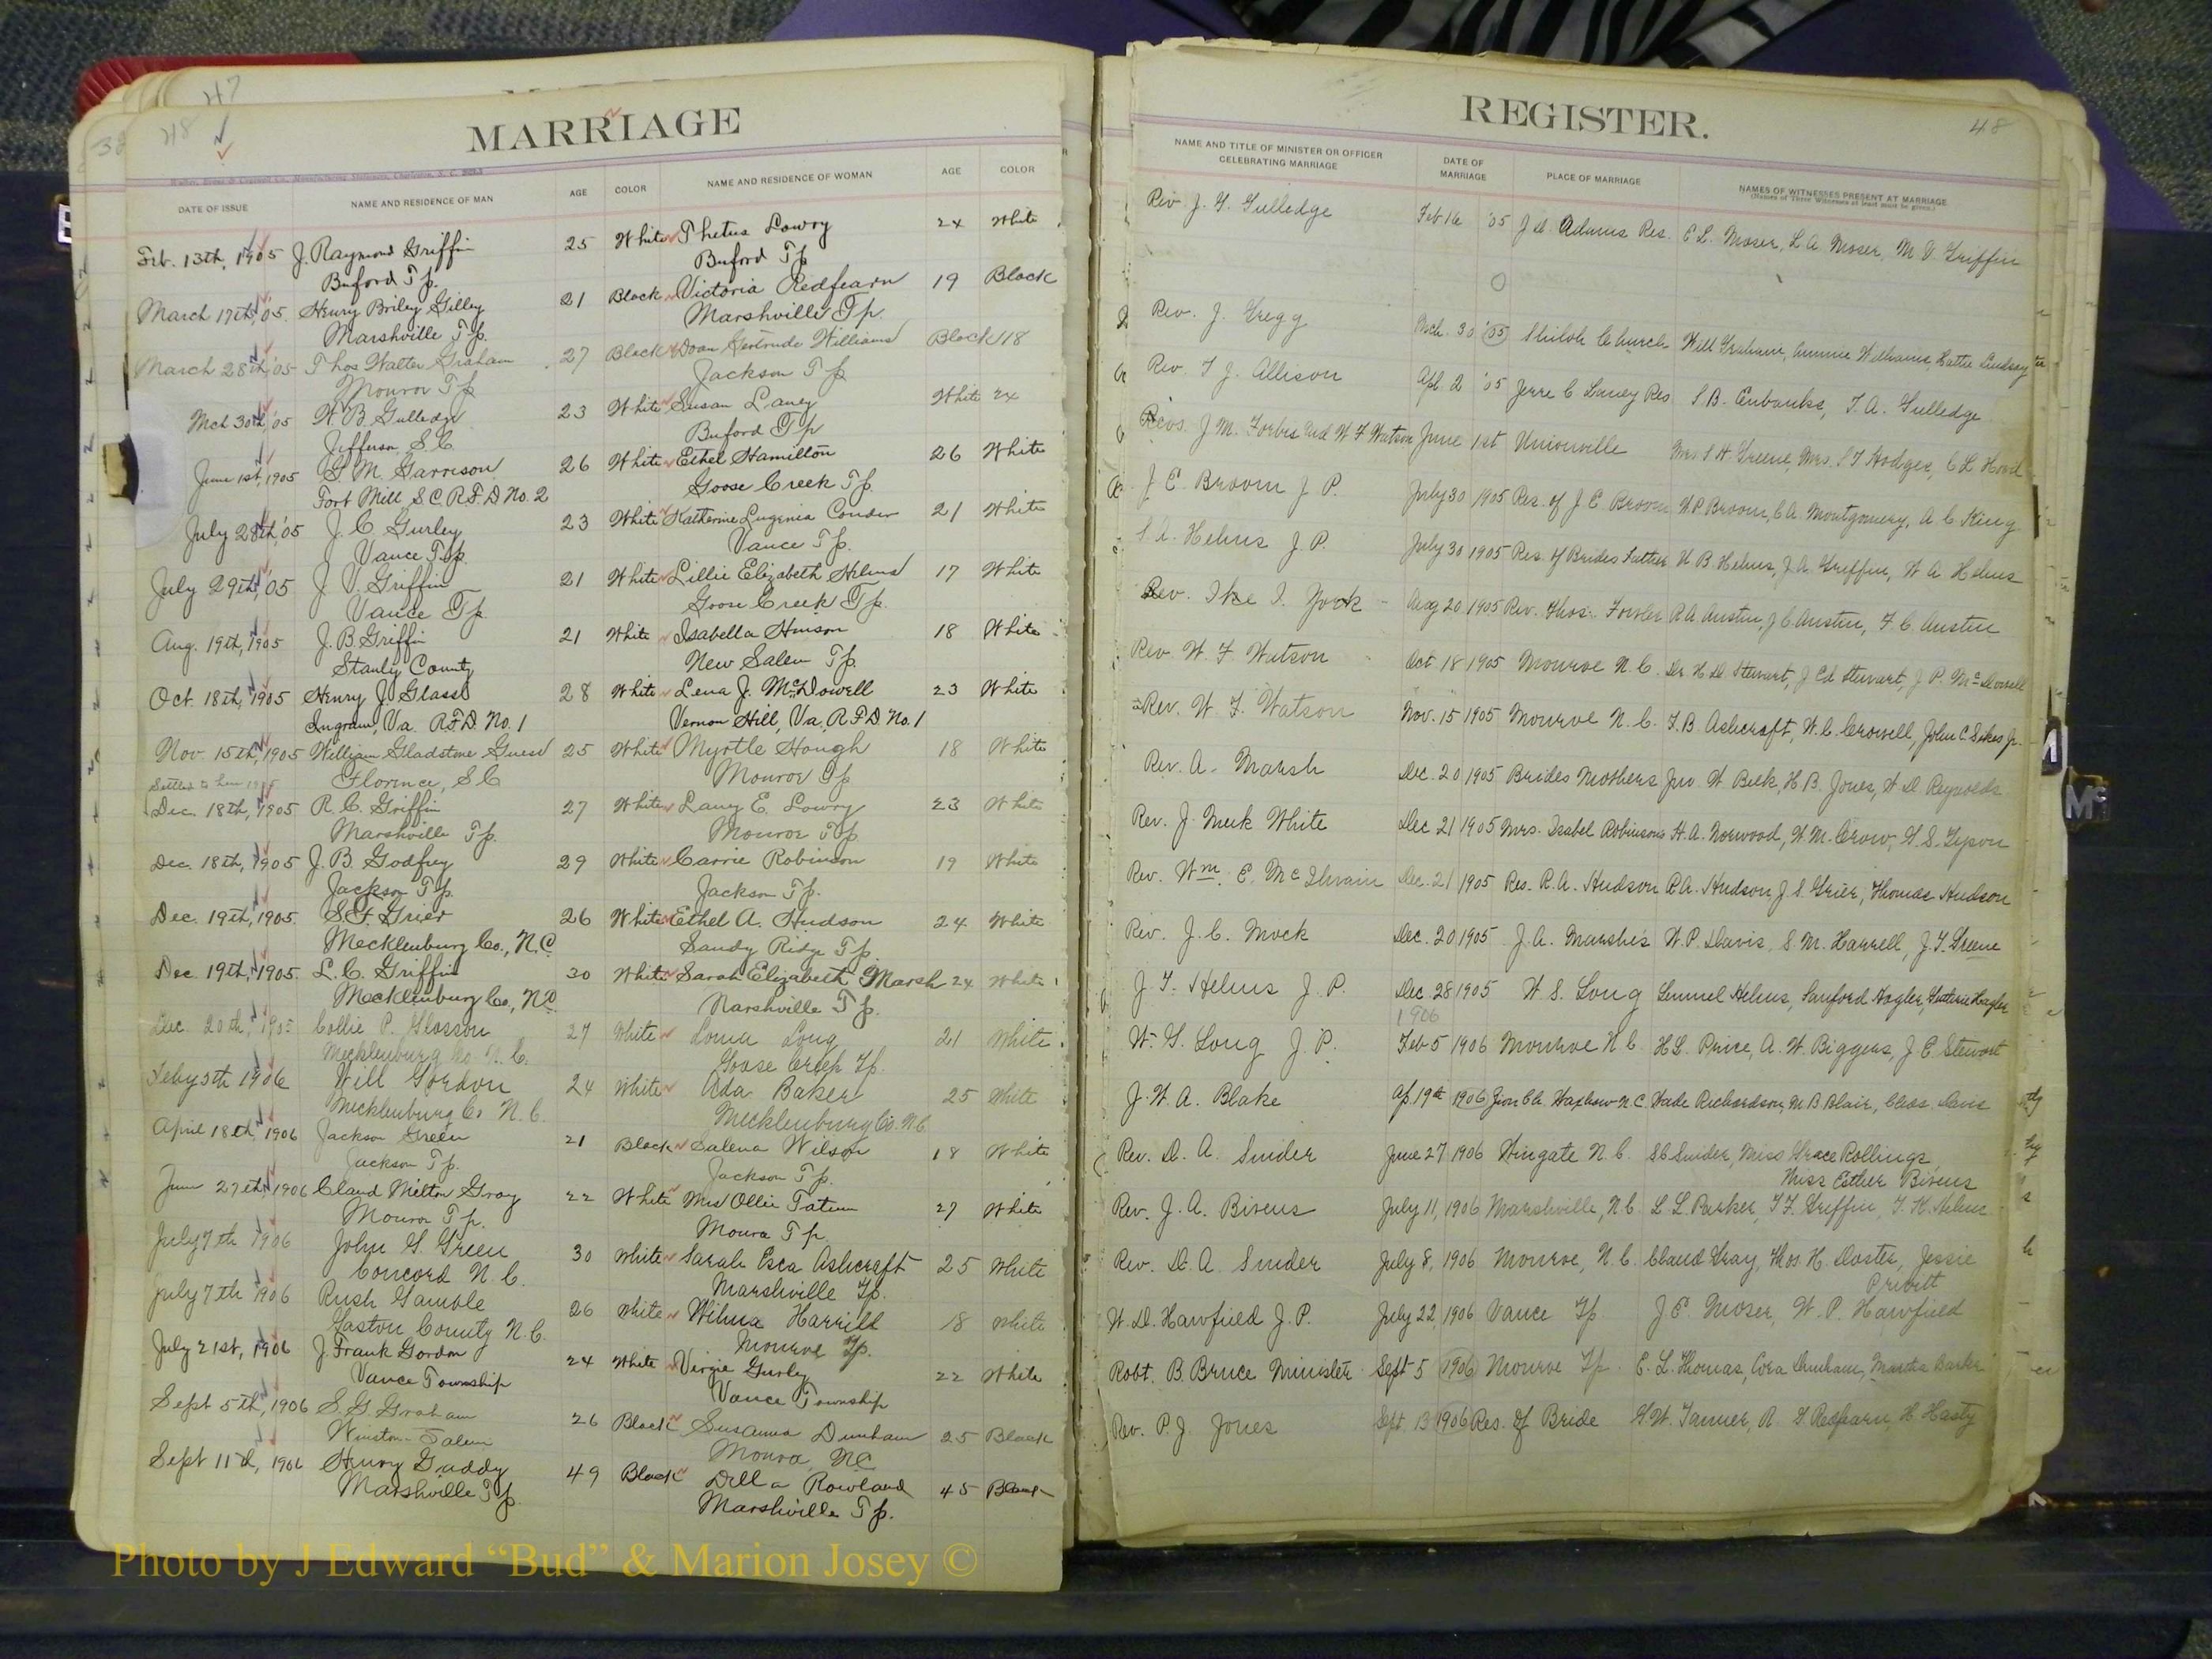 47
38 48
MARRIAGE
DATE OF ISSUE NAME AND RESIDENCE OF MAN AGE COLOR NAME AND RESIDENCE OF WOMAN AGE COLOR
Feb. 13th, 1905 J. Raymond Griffin 25 White Thetus Lowry 24 White
Buford Tp. Buford Tp
March 17th, 05. Henry Briley Gilley 21 Black Victoria Redfearn 19 Black
Marshville Tp. Marshville Tp.
March 28th, '05 Thos Walter Graham 27 Black Doan Gertrude Williams Black 18
Monroe Tp Jackson Tp
Mch 30th, '05 W. B. Gulledge 23 White Susan Laney White 24
Jefferson, S.C. Buford Tp
June 1st, 1905 G. M. Garrison 26 White Ethel Hamilton 26 White
Fort Mill S.C. R.F.D. No. 2 Goose Creek Tp.
July 28th, '05 J. C. Gurley 23 White Katherine Eugenia Conder 21 White
Vance Tp. Vance Tp.
July 29th, 05 J. V. Griffin 21 White Lillie Elizabeth Helms 17 White
Vance Tp. Goose Creek Tp.
Aug. 19th, 1905 J. B. Griffin 21 White Isabella Hinson 18 White
Stanly County New Salem Tp.
Oct. 18th, 1905 Henry J. Glass 28 White Lena J. McDowell 23 White
Ingram, Va. R.F.D. No. 1 Vernon Hill, Va, R.F.D. No. 1
Nov. 15th, 1905 William Gladstone Guess 25 White Myrtle Hough 18 White
Settled to here Florence, S.C Monroe Tp
Dec. 18th, 1905 R. C. Griffin 27 White Laney E. Lowry 23 White
Marshville Tp. Monroe Tp.
Dec. 18th, 1905 J. B. Godfrey 29 White Carrie Robinson 19 White
Jackson Tp. Jackson Tp.
Dec. 19th, 1905. S. F. Grier 26 White Ethel A. Hudson 24 White
Mecklenburg Co., N.C. Sandy Ridge Tp.
Dec. 19th, 1905. L. C. Griffin 30 White Sarah Elizabeth Marsh 24 White
Mecklenburg Co., N.C. Marshville Tp.
Dec. 20th, 1905 Collie P. Glosson 27 White Loma Long 21 White
Mecklenburg Co. N.C. Goose Creek Tp.
Feby 5th 1906 Will Gordon 24 White Ada Baker 25 White
Mecklenburg Co N.C. Mecklenburg Co. N.C.
April 18th, 1906 Jackson Green 21 Black Salena Wilson 18 White
Jackson Tp. Jackson Tp.
June 27th, 1906 Claud Milton Gray 22 White Mrs Ollie Tatum 27 White
Monroe Tp. Monroe Tp.
July 7th 1906 John G. Green 30 White Sarah Esca Ashcraft 25 White
Concord N.C. Marshville Tp.
July 7th 1906 Rush Gamble 26 White Wilma Harrill 18 White
Gaston County N.C. Monroe Tp.
July 21st, 1906 J. Frank Gordon 24 White Virgie Gurley 22 White
Vance Township Vance Township
Sept 5th, 1906 S. G. Graham 26 Black Susanna Dunham 25 Black
Winston-Salem Monroe, NC
Sept 11th, 1906 Henry Gaddy 49 Black Della Rowland 45 Black
Marshville Tp. Marshville Tp.
REGISTER. 48
NAME AND TITLE OF MINISTER OR OFFICER CELEBRATING MARRIAGE DATE OF MARRIAGE PLACE OF MARRIAGE NAMES OF WITNESSES PRESENT AT MARRIAGE
(Names of Three Witnesses at least must be given.)
Rev. J. Y. Gulledge Feb 16 '05 J. D. Adams Res. E L. Moser, L A. Moser, M. V. Griffin
Rev. J. Gregg Mch. 30 '05 Shiloh Church Will Graham, Annie Williams, Hattie Lindsey
Rev. T J. Allison Apl. 2 '05 Jerre C Laney Res S. B. Eubanks, T. A. Gulledge
Revs. J M. Forbis and W F Watson June 1st Unionville Mrs S H Greene, Mrs. S T Hodges, C L Hood
J E Broom J P. July 30 1905 Res. of J E. Broom W. P. Broom, C A. Montgomery, A C. King
S. A. Helms J P. July 30 1905 Res. of Brides Father W B. Helms, J. A. Griffin, W A Helms
Rev. Ike I. York Aug 20 1905 Rev. Thos. Fowler R A Austin, J C Austin, F. C. Austin
Rev W. F. Watson Oct 18 1905 Monroe N.C. Dr. H D. Stewart, J Ed Stewart, J P. McDowell
Rev. W. F. Watson Nov. 15 1905 Monroe N.C. F. B. Ashcraft, W. C. Crowell, John C. Sikes Jr.
Rev. A. Marsh Dec. 20 1905 Brides Mothers Jno. W. Belk, H B. Jones, W D Reynolds
Rev. J. Meek White Dec 21 1905 Mrs. Isabel Robinsons H. A. Norwood, W M. Crow, G S. Tyson
Rev. Wm. E. McIlwain Dec. 21 1905 Res. R. A. Hudson R A. Hudson, J. S. Grier, Thomas Hudson
Rev. J. C. Mock Dec. 20 1905 J. A. Marshes W. P. Davis, S. M. Harrell, J. T. Greene
J. T. Helms J. P. Dec. 28 1905 W S. Long Lemmel Helms, Sanford Hagler, Hagler
1906
W. G. Long J. P. Feb 5 1906 Monroe N C H L. Price, A. W. Biggers, J E Stewart
J. W. A. Blake Ap. 19th 1906 Zion Ch. Waxhaw N C. Wade Richardson, M. B. Blair, Chas. Davis
Rev. D. A. Snider June 27 1906 Wingate N.C. S C Snider, Miss Grace Rollings
Miss Esther Bivens
Rev. J. A. Bivens July 11, 1906 Marshville, N.C. L. L. Parker, T. F. Griffin, T. H. Helms
Rev. D. A. Snider July 8, 1906 Monroe, N.C. Claud Gray, Thos. H. Doster, Jessie
Privitt
W. D. Hawfield J. P. July 22, 1906 Vance Tp J E Moser, W. P. Hawfield
Robt. B. Bruce Minister Sept 5 1906 Monroe Tp. E. L. Thomas, Cora Dunham, Martha
Rev. P. J. Jones Sept. 13 1906 Res. of Bride G. W. Tanner, R. G. Redfearn, H. Hasty
Photo by J Edward “Bud” & Marion Josey ©